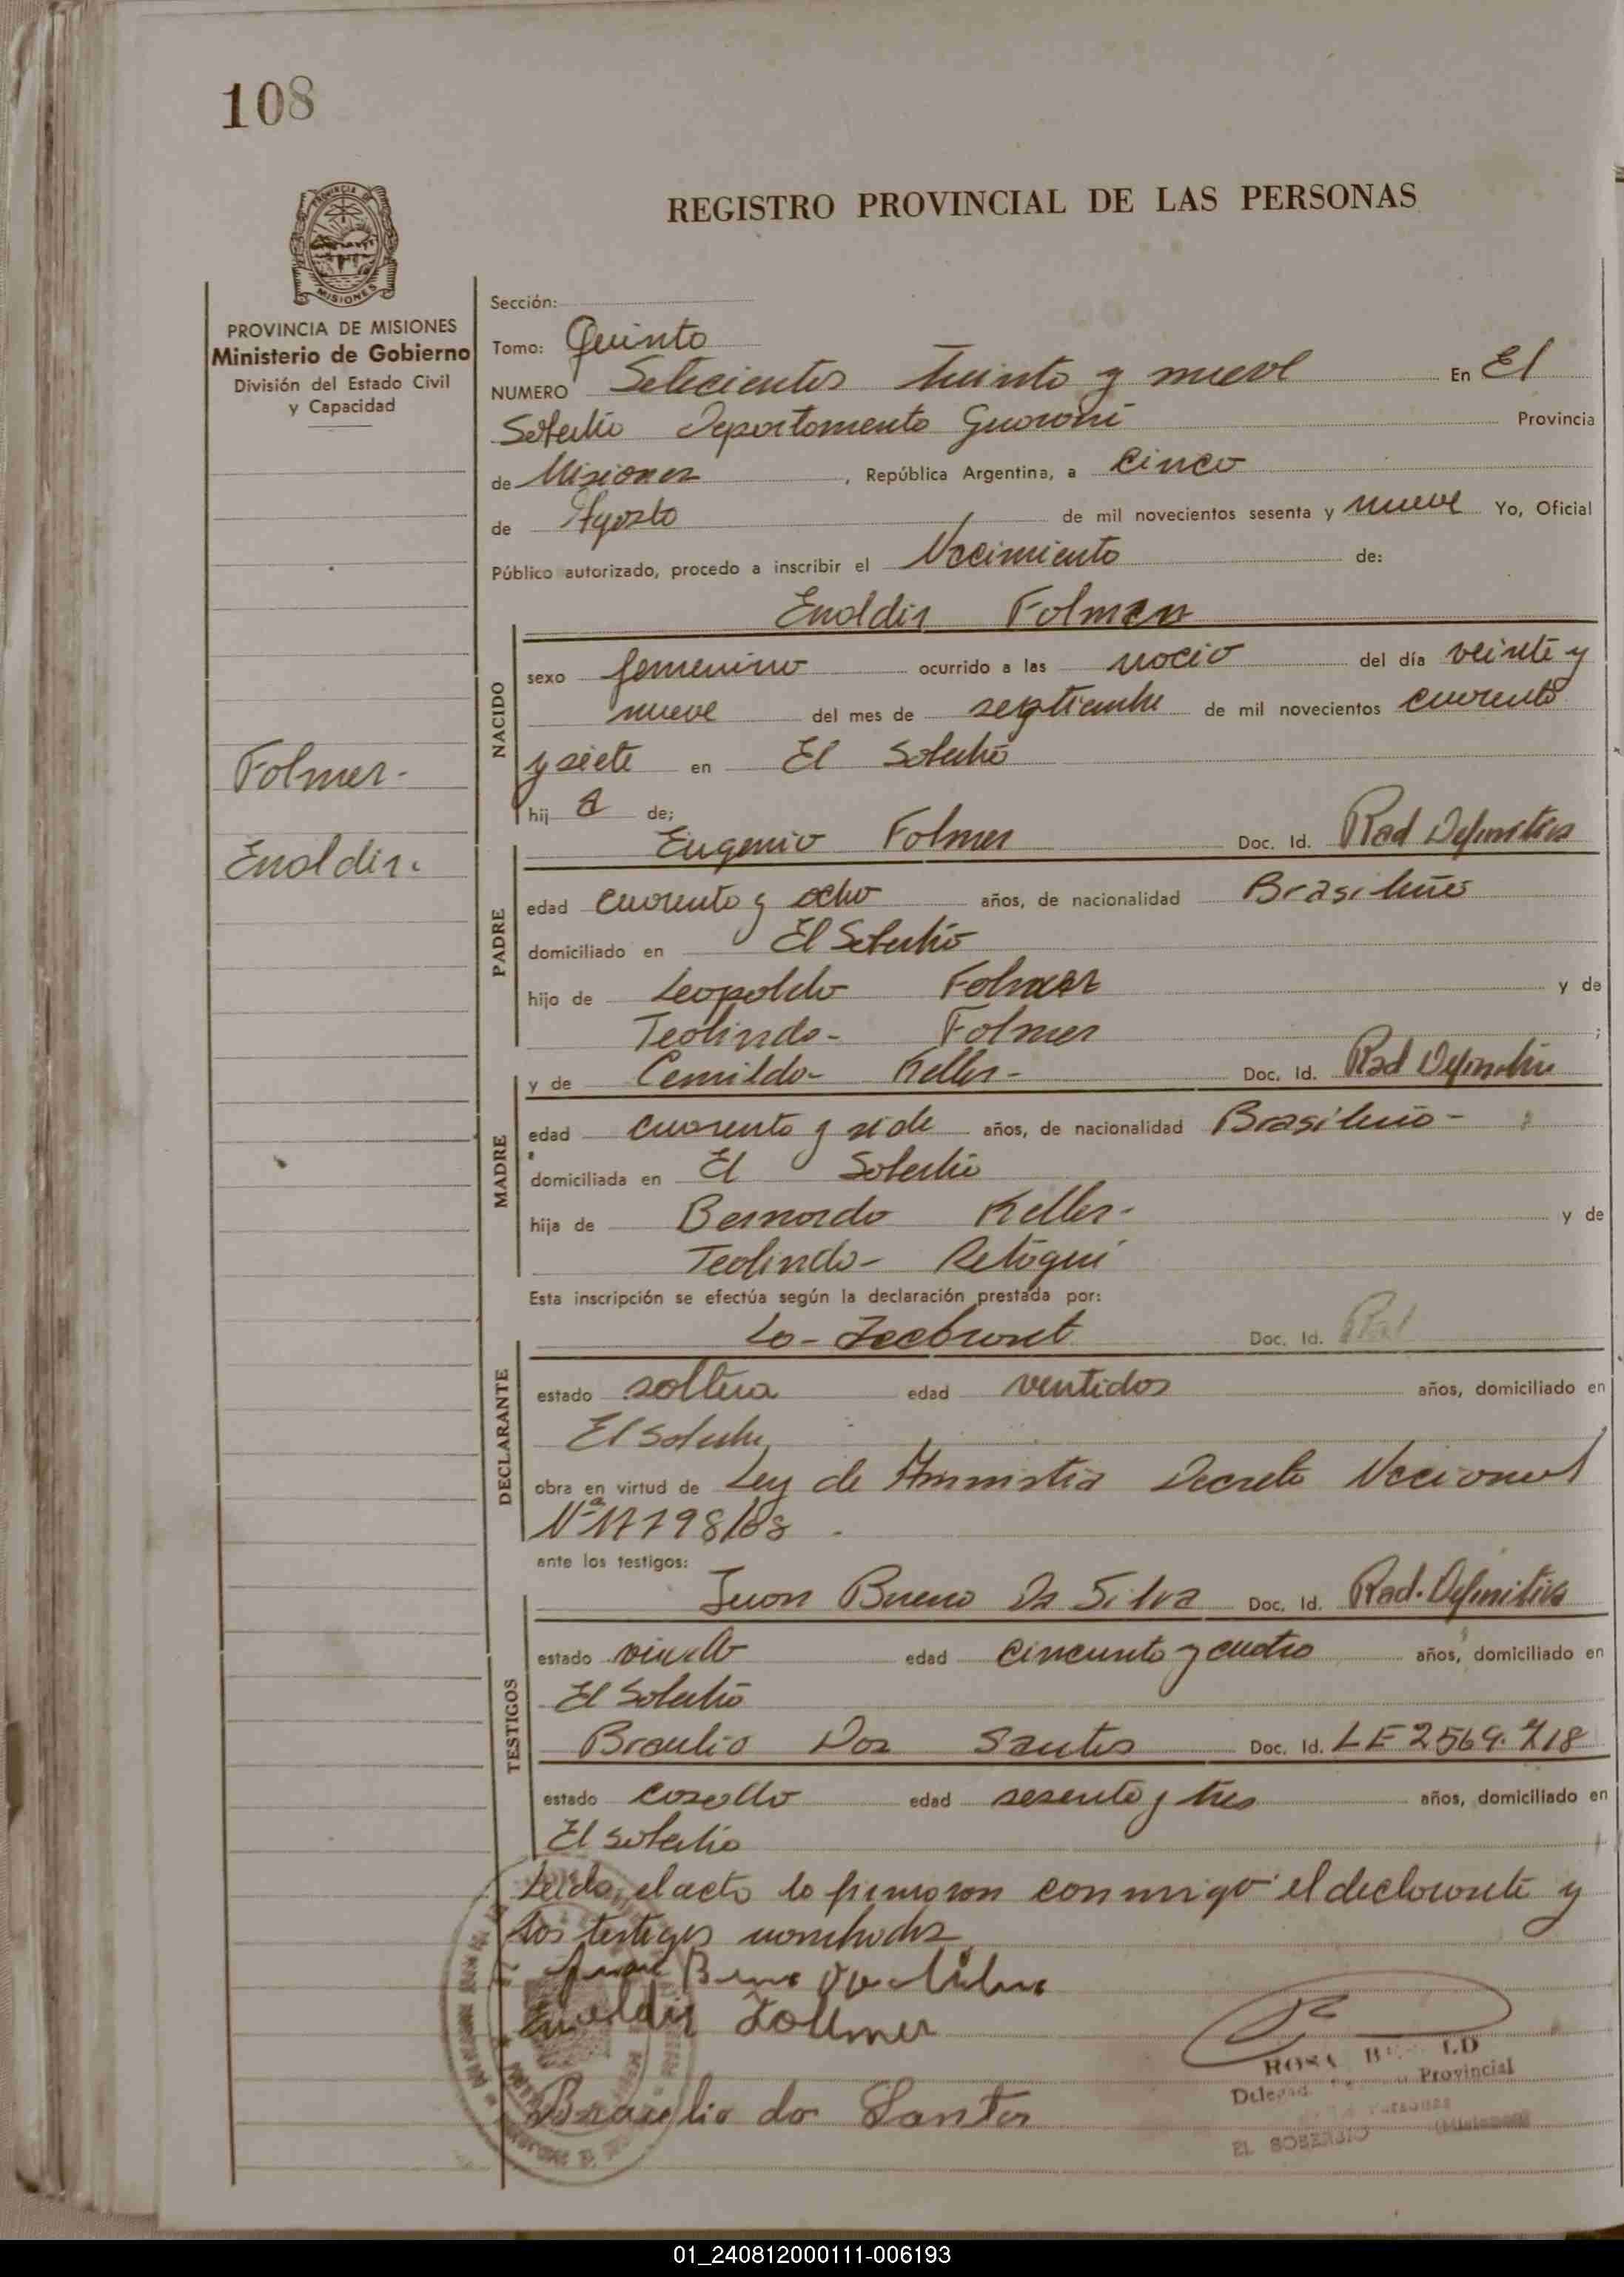 108
REGISTRO PROVINCIAL DE LAS PERSONAS
PROVINCIA DE
MISIONES
PROVINCIA DE MISIONES
Ministerio de Gobierno
División del Estado Civil
y Capacidad
Folmer-
Enoldir.
Sección:
Tomo: Quinto
NUMERO Setecientos treinta y nueve En El
Soberbio Departamento Guaraní Provincia
de Misiones, República Argentina, a Cinco
de Agosto de mil novecientos sesenta y nueve Yo, Oficial
Público autorizado, procedo a inscribir el Nacimiento de:
Enoldir Folmer
NACIDO
sexo femenino ocurrido a las del día veinte y
nueve del mes de septiembre de mil novecientos cuarenta
y siete en El Soberbio
hij a de;
Eugenio Folmer Doc. Id. Rad Definitiva
PADRE
edad cuarenta y ocho años, de nacionalidad Brasileño
domiciliado en El Soberbio
hijo de Leopoldo Folmer y de
Teolinda- Folmer ;
y de Cemilda- Keller- Doc. Id. Rad Definitiva
MADRE
edad cuarenta y siete años, de nacionalidad Brasileña-
domiciliada en El Soberbio
hija de Bernardo Keller- y de
Teolinda-
Esta inscripción se efectúa según la declaración prestada por:
La- Doc. Id. Rad
DECLARANTE
estado soltera edad ventidos años, domiciliado en
El Soberbio
obra en virtud de Ley de Amnistia Decreto Nacional
Nº 17798/68
ante los testigos:
Juan Bueno Da Silva Doc. Id. Rad. Definitiva
TESTIGOS
estado viudo edad cincuenta y cuatro años, domiciliado en
El Soberbio
Braulio Dos Santos Doc. Id. LE 2569.718
estado casado edad sesenta y tres años, domiciliado en
El Soberbio
Leida, el acta la firmaron conmigo el declarante y
los testigos nombrados
Enoldir Follmer
Braulio do Santos
ROSA
Provincial
EL SOBERBIO (Misiones)
01_240812000111-006193